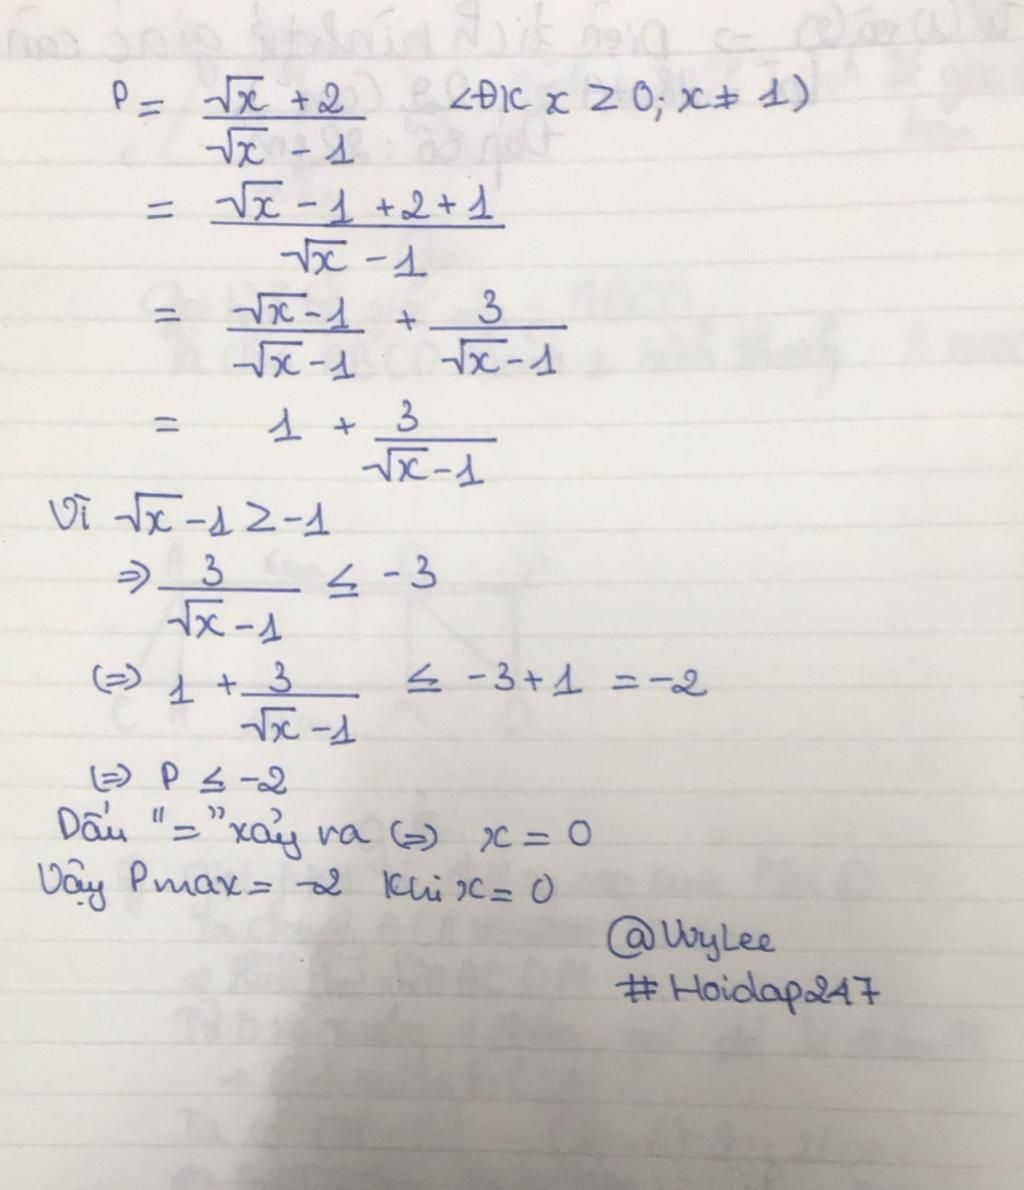 P = \frac{\sqrt{x} + 2}{\sqrt{x} - 1} <ĐK x ≥ 0; x ≠ 1)
= \frac{\sqrt{x} - 1 + 2 + 1}{\sqrt{x} - 1}
= \frac{\sqrt{x} - 1}{\sqrt{x} - 1} + \frac{3}{\sqrt{x} - 1}
= 1 + \frac{3}{\sqrt{x} - 1}
Vì \sqrt{x} - 1 ≥ -1
⇒ \frac{3}{\sqrt{x} - 1} ≤ -3
(=) 1 + \frac{3}{\sqrt{x} - 1} ≤ -3 + 1 = -2
(=) P ≤ -2
Dấu "=" xảy ra (=) x = 0
Vậy Pmax = -2 khi x = 0
@VyLee
#Hoidap247